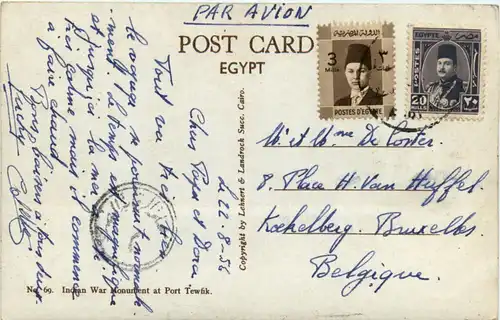 PAR AVION
POST CARD
EGYPT
3
Mills.
٣
POSTES D'EGYPTE
EGYPTE
POSTES
20
٢٠
Le 22-8-56
Chers Papa et Dora
Tout va très bien
le voyage se poursuit normale-
ment, le temps est magnifique
et jusqu'ici la mer
très calme mais il commence
à faire chaud.
Bons baisers à tous deux
Mr et Mme De Coster.
8, Place H. Van Huffel.
Koekelberg. Bruxelles
Belgique.
Copyright by Lehnert & Landrock Succ. Cairo.
No. 69. Indian War Monument at Port Tewfik.